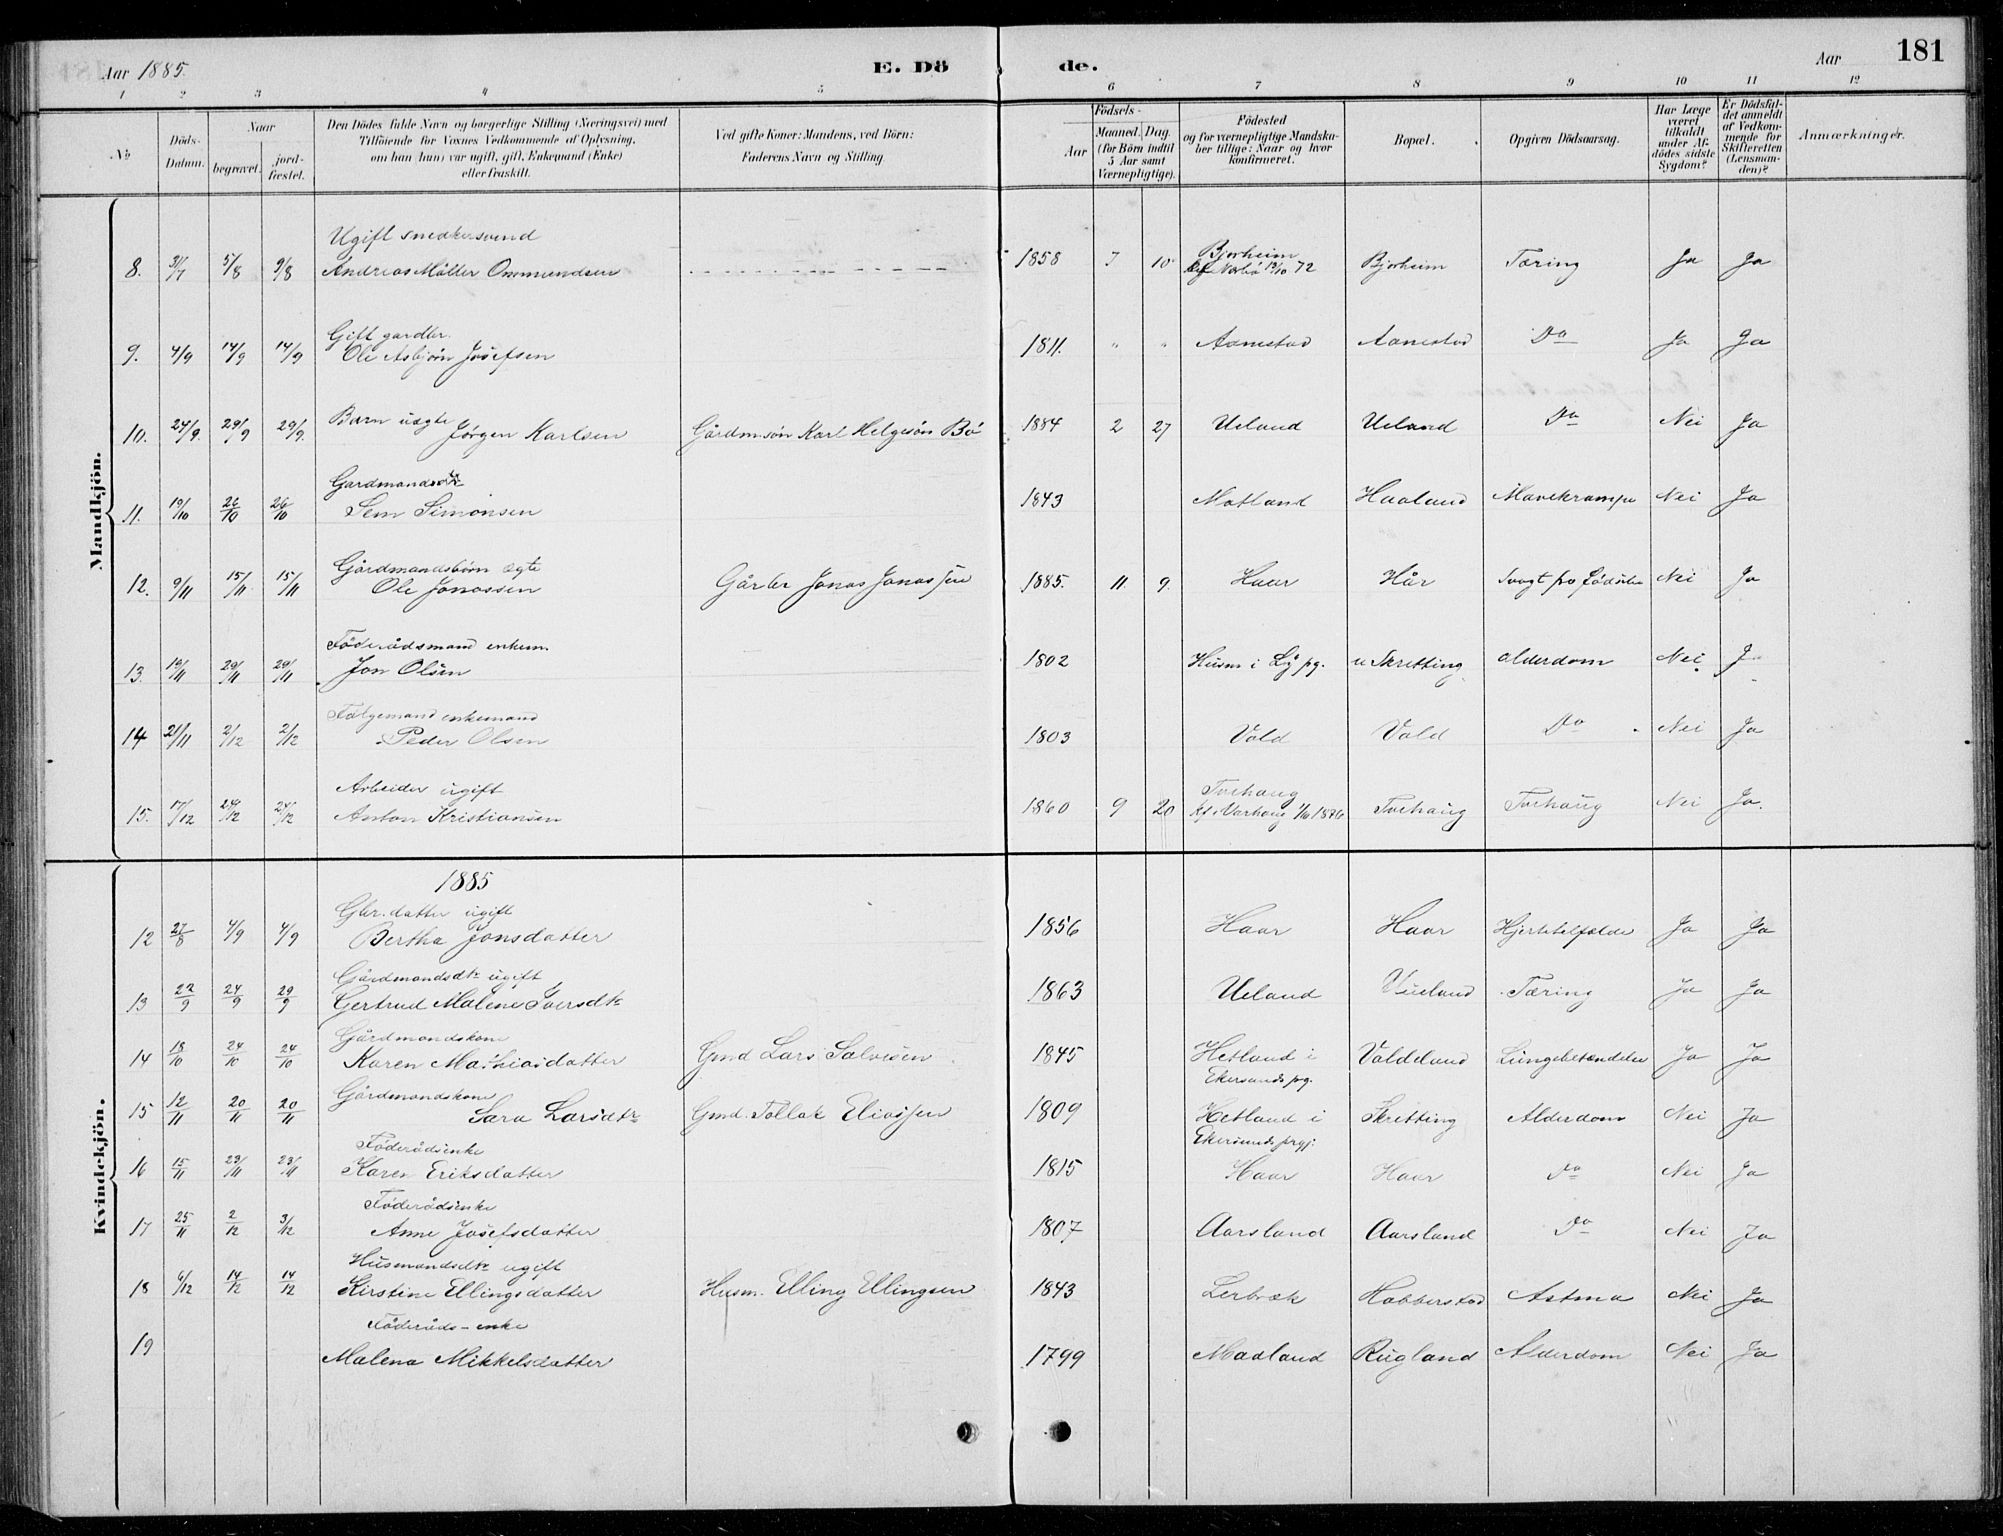 Aar 1885.
E. Dö
de.
Aar
181
1 2 3 4 5 6 7 8 9 10 11 12
No
Döds-Datum.
Naar
begravet.
jord-fæstet.
Den Dödes fulde Navn og borgerlige Stilling (Næringsvei) med
Tilföiende for Voxnes Vedkommende af Oplysning,
om han (hun) var ugift, gift, Enkemand (Enke)
eller fraskilt.
Ved gifte Koner: Mandens, ved Börn:
Faderens Navn og Stilling
Födsels-
Aar
Maaned. Dag.
(for Börn indtil
5 Aar samt
Værnepligtige).
Födested
og for værnepligtige Mandska-
ber tillige: Naar og hvor
konfirmeret.
Bopæl.
Opgiven Dödsaarsag.
Har Læge
været
tilkaldt
under Af-
dödes sidste
Sygdom?
Er Dödsfal-
det anmeldt
af Vedkom-
mende for
Skifteretten
(Lensman-
den)?
Anmærkninger.
Mandkjön.
Ugift snedkersvend
8. 31/7 5/8 9/8 Andreas Möller Ommundsen 1858 7 10 Bjorheim 13/10 72 Bjorheim Tæring Ja Ja
Gift gardbr.
9. 4/9 14/9 14/9 Ole Asbjörn Josefsen 1811. " " Aanestad Aanestad Do Ja Ja
Barn uægte
10. 24/9 29/9 29/9 Jörgen Karlsen Gårdm.sön Karl Helgesön Bö 1884 2 27 Ueland Ueland Do Nei Ja
Gardmand
11. 19/10 26/10 26/10 Sem Simonsen 1843 Matland Haaland Mavekrampe Nei Ja
Gårdmandsbörn ægte
12. 9/11 15/11 15/11 Ole Jonassen Gårbr Jonas Jonassen 1885. 11 9. Haar Hår Svagt fra Födsten Nei Ja
Föderådsmand enkem.
13. 19/11 29/11 29/11 Jon Olsen 1802 Husm i Ly pg. u Skretting alderdom Nei J
Følgemand enkemand
14 21/11 2/12 2/12 Peder Olsen 1803 Vold Vold Do Nei Ja
Arbeider ugift
15. 17/12 24/12 24/12 Anton Kristiansen 1860 9 20 Tvehaug Kf i Varhaug 1/10 1876 Tvehaug Tvehaug Nei Ja.
Kvindekjön.
1885
Gbr. datter ugift
12 27/8 4/9 4/9 Bertha Jonsdatter 1856 Haar Haar Hjertetilfælde Ja Ja
Gårdmandsdtr ugift
13 22/9 24/9 29/9 Gertrud Malene Iversdtr 1863 Ueland Ueland Tæring Ja Ja
Gårdmandskone
14 18/10 24/10 24/10 Karen Mathiasdatter Gmd Lars Salvesen 1845 Hetland i Ekersunds pg. Valdeland Lungebetændelse Ja Ja
Gårdmandskone
15 12/11 20/11 20/11 Sara Larsdtr Gmd. Tollak Eliassen 1809 Hetland i Ekersunds prgj. Skretting Alderdom Nei Ja
Föderådsenke
16 15/11 23/11 23/11 Karen Eriksdatter 1815 Haar Haar Do Nei Ja
Föderådsenke
17 25/11 2/12 3/12 Anne Josefsdatter 1807 Aarsland Aarsland Do Nei Ja
Husmandsdtr ugift
18 6/12 14/12 14/12 Kirstine Ellingsdatter Husm. Elling Ellingsen 1843 Lerbræk Habberstad Astma Nei Ja
Föderåds-enke
19 Malena Mikkelsdatter 1799 Madland Rugland Alderdom Nei Ja